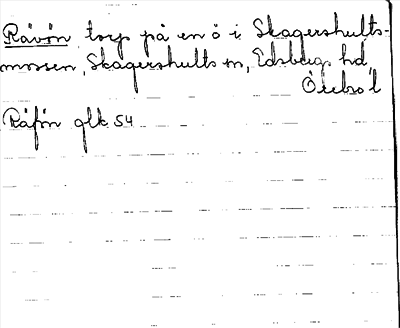 Råvön torp på en ö i Skagershults-
mossen, Skagershults sn, Edsbergs hd,
Örebro l
Råfön glk 54